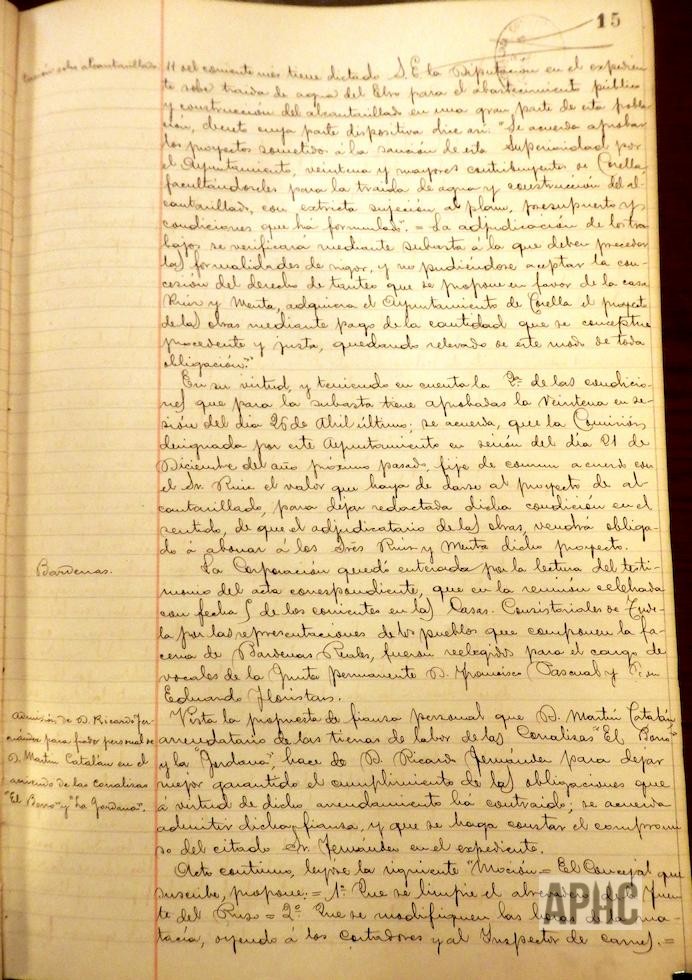 15
11 del corriente mes tiene dictado S. E. la Diputación en el expedien-
te sobre traida de agua del Ebro para el abastecimiento público
y construcción del alcantarillado en una gran parte de esta pobla-
ción, decreto cuya parte dispositiva dice así: "Se acuerda aprobar
los proyectos sometidos á la sanción de esta Superioridad por
el Ayuntamiento, veintena y mayores contribuyentes de Corella
facultándoles para la traida de agua y construcción del al-
cantarillado, con estricta sujeción al plano, presupuesto y
condiciones que há formulado". = La adjudicación de los tra-
bajos se verificará mediante subasta á la que deben preceder
las formalidades de rigor, y no pudiéndose aceptar la con-
cesión del derecho de tanteo que se propone en favor de la casa
Ruiz y Menta, adquiera el Ayuntamiento de Corella el proyecto
de las obras mediante pago de la cantidad que se conceptue
procedente y justa, quedando relevado de este modo de toda
obligación."
En su virtud, y teniendo en cuenta la 2ª de las condicio-
nes que para la subasta tiene aprobadas la Veintena en se-
sión del día 26 de Abril último; se acuerda, que la Comisión
designada por este Ayuntamiento en sesión del día 21 de
Diciembre del año próximo pasado, fije de comun acuerdo con
el Sr. Ruiz el valor que haya de darse al proyecto de al-
cantarillado, para dejar redactada dicha condición en el
sentido, de que el adjudicatario de las obras, vendrá obliga-
do á abonar á los Sres Ruiz y Menta dicho proyecto.
Bardenas.
La Corporación quedó enterada por la lectura del testi-
monio del acta correspondiente, que en la reunión celebrada
con fecha 5 de los corrientes en las Casas Consistoriales de Tude-
la por las representaciones de los pueblos que componen la fa-
cería de Bardenas Reales, fueron reelegidos para el cargo de
vocales de la Junta permanente D. Francisco Pascual y D.
Eduardo Floristán.
Admisión de D. Ricardo Fer-
nández para fiador personal de
D. Martín Catalán en el
arriendo de las corralizas
"El Borro" y "La Jordana".
Vista la propuesta de fianza personal que D. Martín Catalán,
arrendatario de las tierras de labor de las Corralizas "El Borro"
y la "Jordana", hace de D. Ricardo Fernández para dejar
mejor garantido el cumplimiento de las obligaciones que
á virtud de dicho arrendamiento há contraido; se acuerda
admitir dicha fianza, y que se haga constar el compromi-
so del citado Sr. Fernández en el expediente.
Acto continuo, leyose la siguiente "Moción = El Concejal que
suscribe, propone: = 1º Que se limpie el abrevadero de la Fuen-
te del Pozo = 2º Que se modifiquen las horas de ma-
tacía, oyendo á los cortadores y al Inspector de carnes. =
APHC